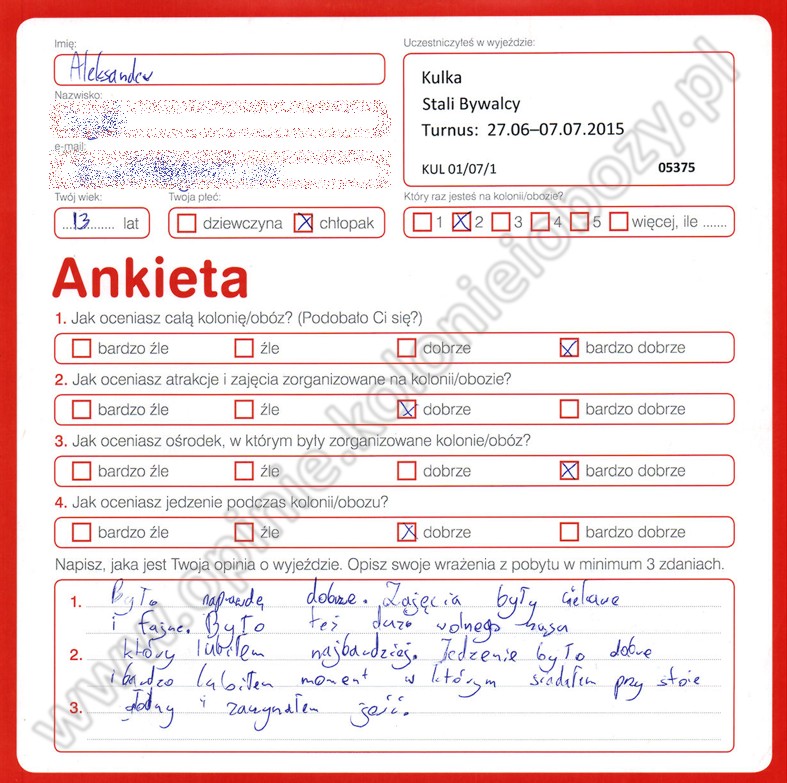 Imię:
Aleksander
Nazwisko:
e-mail:
Twój wiek:
13 lat
Twoja płeć:
dziewczyna chłopak
Uczestniczyłeś w wyjeździe:
Kulka
Stali Bywalcy
Turnus: 27.06–07.07.2015
KUL 01/07/1 05375
Który raz jesteś na kolonii/obozie?
1 2 3 4 5 więcej, ile .......
Ankieta
1. Jak oceniasz całą kolonię/obóz? (Podobało Ci się?)
bardzo źle źle dobrze bardzo dobrze
2. Jak oceniasz atrakcje i zajęcia zorganizowane na kolonii/obozie?
bardzo źle źle dobrze bardzo dobrze
3. Jak oceniasz ośrodek, w którym były zorganizowane kolonie/obóz?
bardzo źle źle dobrze bardzo dobrze
4. Jak oceniasz jedzenie podczas kolonii/obozu?
bardzo źle źle dobrze bardzo dobrze
Napisz, jaka jest Twoja opinia o wyjeździe. Opisz swoje wrażenia z pobytu w minimum 3 zdaniach.
1. Było naprawdę dobrze. Zajęcia były ciekawe
i fajne. Było też dużo wolnego czasu
2. który lubiłem najbardziej. Jedzenie było dobre
i bardzo lubiłem moment w którym siadałem przy stole
3. głodny i zaczynałem jeść.
www.opinie.kolonieiobozy.pl